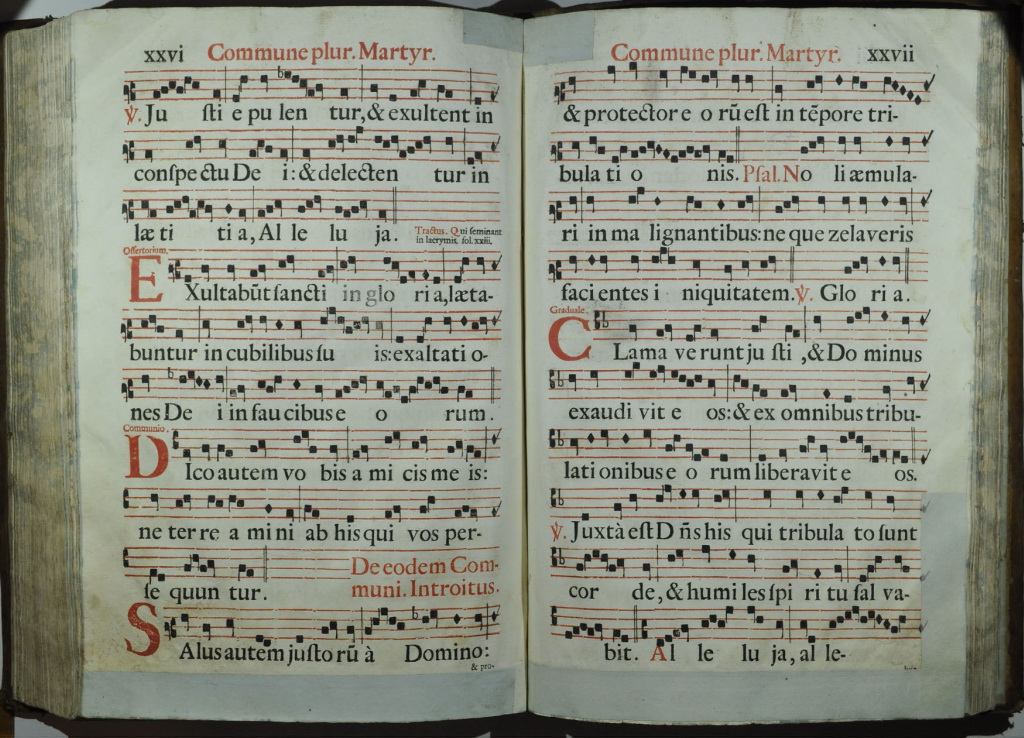 xxvi Commune plur. Martyr.
℣. Ju ſti e pu len tur, & exultent in
conſpe ctu De i: & delecten tur in
læ ti ti a, Al le lu ja. Tractus. Qui ſeminant
in lacrymis, fol. xxiii.
Offertorium.
EXultabūt ſancti in glo ri a, læta-
buntur in cubilibus ſu is: exaltati o-
nes De i in fau cibus e o rum.
Communio.
DIco autem vo bis a mi cis me is:
ne ter re a mi ni ab his qui vos per-
ſe quun tur. De eodem Com-
muni. Introitus.
SAlus autem juſto rū à Domino:
& pro-
Commune plur. Martyr. xxvii
& protector e o rū eſt in tēpore tri-
bula ti o nis. Pſal. No li æmula-
ri in ma lignantibus: ne que zelaveris
faci entes i niquitatem. ℣. Glo ri a.
Graduale.
CLama ve runt ju ſti, & Do minus
exaudi vit e os: & ex omnibus tribu-
lati onibus e o rum liberavit e os.
℣. Juxtà eſt Dñs his qui tribula to ſunt
cor de, & humi les ſpi ri tu ſal va-
bit. Al le lu ja, al le-